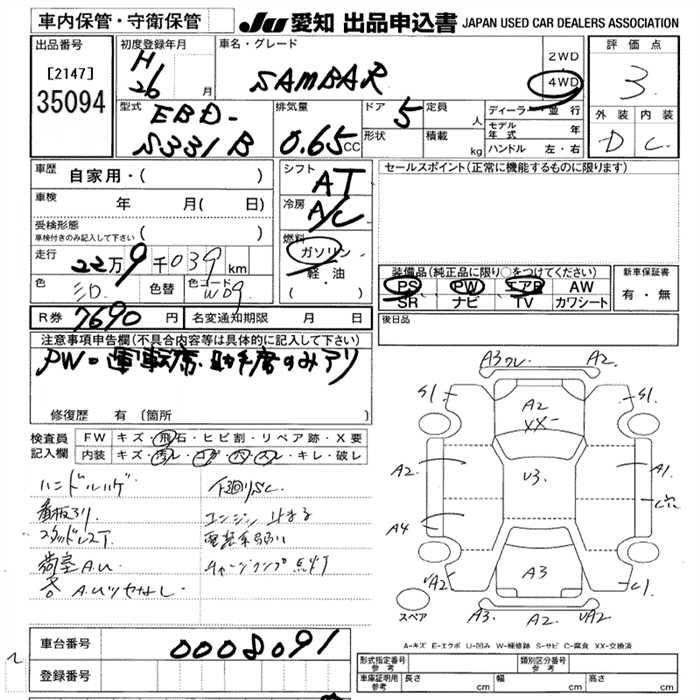 車内保管・守衛保管
JU 愛知 出品申込書 JAPAN USED CAR DEALERS ASSOCIATION
出品番号
[2147]
35094
初度登録年月
H
26 月
車名・グレード
SAMBAR
2WD
4WD
評価点
3
外装 内装
D C
型式
EBD-
S331B
排気量
0.65 CC
ドア 5
形状
定員 人
積載 kg
ディーラー・並行
モデル年式 年
ハンドル 左・右
車歴 自家用・( )
車検 年 月( 日)
受検形態
車検付きのみ記入して下さい
走行 22万9千039km
色 シロ 色替 色コード W09
R券 7690 円 名変通知期限 月 日
シフト AT
冷房 A/C
燃料
ガソリン
軽・油
( )
セールスポイント(正常に機能するものに限ります)
装備品(純正品に限り○をつけてください)
PS PW エアB AW
SR ナビ TV カワシート
新車保証書
有・無
後日品
注意事項申告欄(不具合内容等は具体的に記入して下さい)
PW=運転席・助手席のみアリ
修復歴 有 (箇所 )
検査員記入欄
FW キズ・飛石・ヒビ割・リペア跡・X要
内装 キズ・汚レ・コゲ・穴・スレ・キレ・破レ
ハンドルハゲ
看板クリ
スタッドレスT
荷室A.U
各A.Uツヤなし
下廻りS.C
エンジン止まる
電装系弱い
チャージランプ点灯
A3ワレ A2
S1 S1
A2
XX
A2 U3 A1
A4
A3
UA2 C1
A3 A2 UA2
スペア
A-キズ E-エクボ U-凹み W-補修跡 S-サビ C-腐食 XX-交換済
車台番号 0008091
登録番号
型式指定番号 参考
類別区分番号 参考
車庫証明用 参考 長さ cm 幅 cm 高さ cm